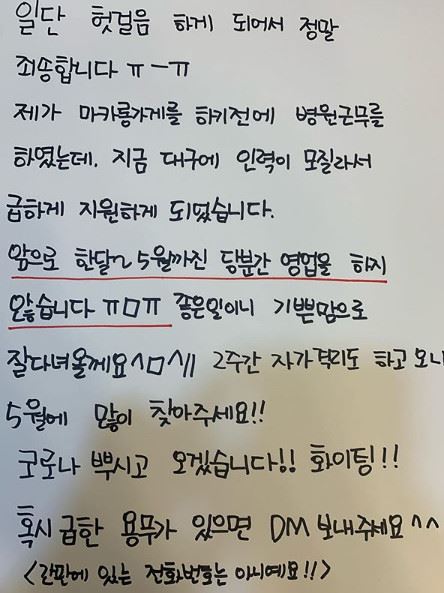 일단 헛걸음 하게 되어서 정말
죄송합니다 ㅠㅡㅠ
제가 마카롱가게를 하기전에 병원근무를
하였는데. 지금 대구에 인력이 모질라서
급하게 지원하게 되었습니다.
앞으로 한달~5월까진 당분간 영업을 하지
않습니다 ㅠㅁㅠ 좋은일이니 기쁜맘으로
잘다녀올께요^ㅁ^// 2주간 자가격리도 하고 오니
5월에 많이 찾아주세요!!
코로나 뿌시고 오겠습니다!! 화이팅!!!
혹시 급한 용무가 있으면 DM 보내주세요^^
<간판에 있는 전화번호는 아니예요!!>